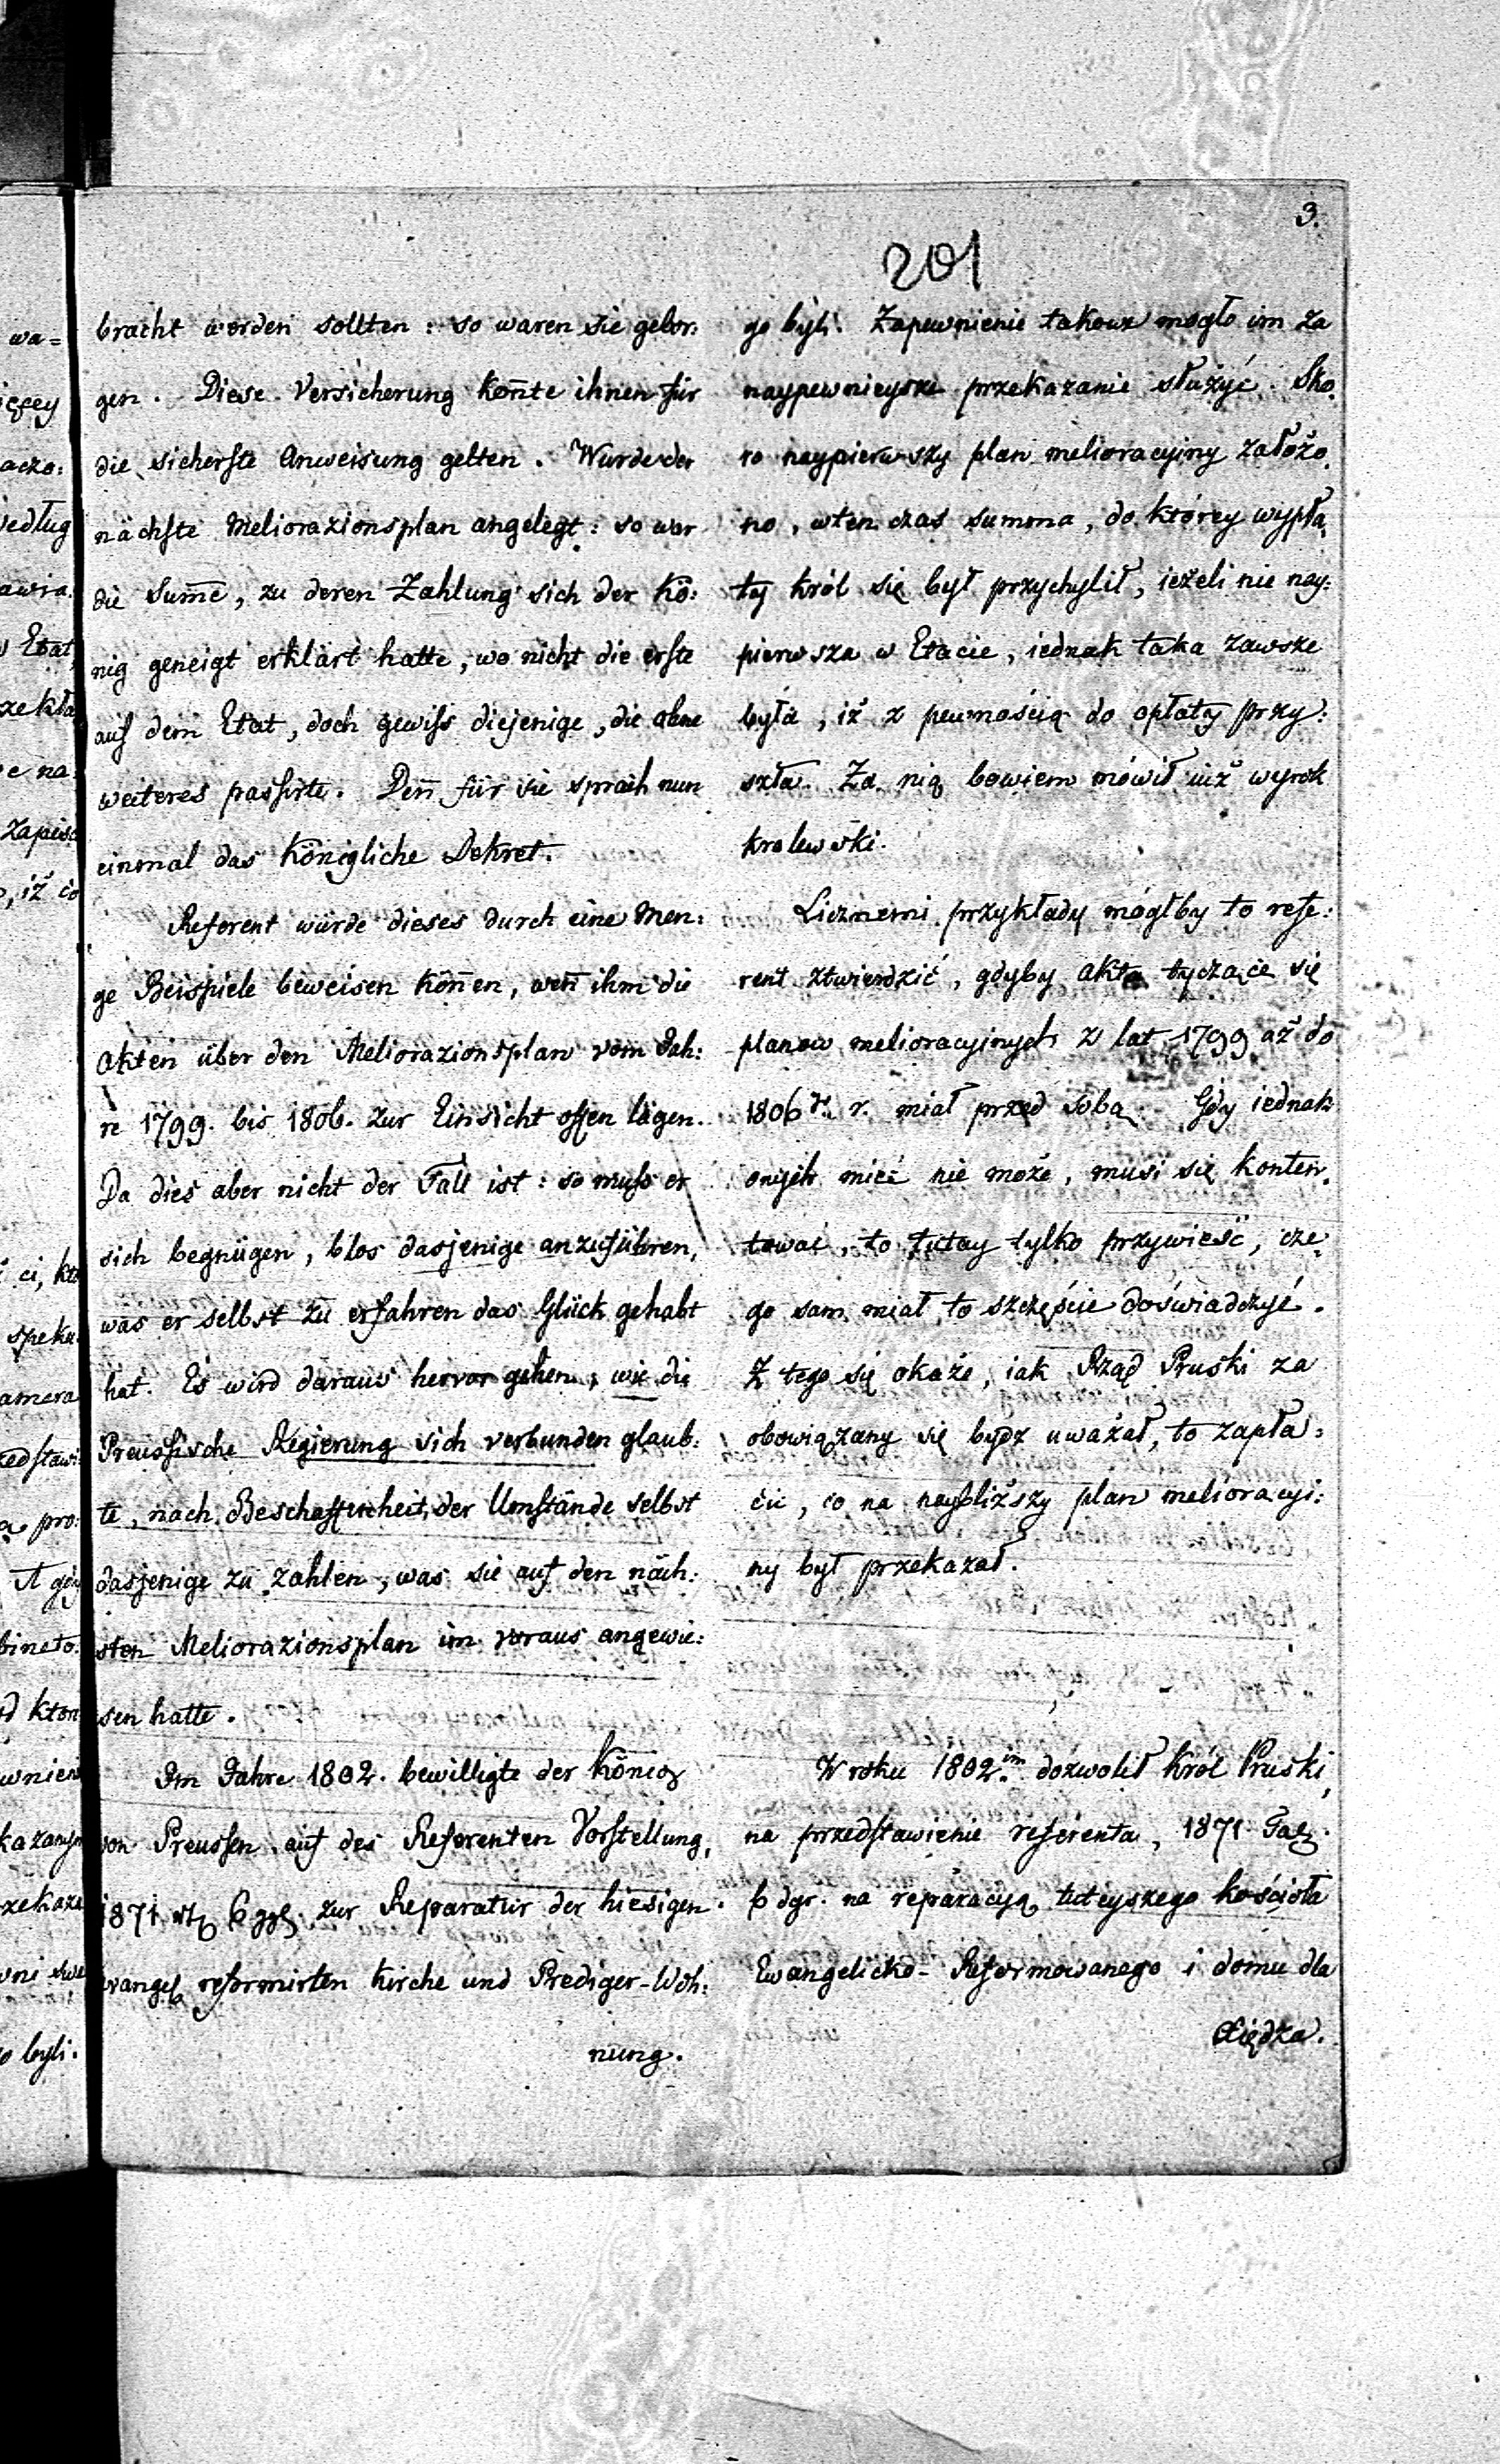 3.
201
bracht werden sollten: so waren sie gebor:
gen. Diese Versicherung kon̄te ihnen für
die sicherste Anweisung gelten. Wurde der
nächste Meliorazionsplan angelegt: so war
die Sum̄e, zu deren Zahlung sich der Kö:
nig geneigt erklärt hatte, wo nicht die erste
auf dem Etat, doch gewiss diejenige, die ohne
weiteres passirte. Den̄ für sie sprach nun
einmal das Königliche Dekret.
Referent würde dieses durch eine Men:
ge Beispiele beweisen kön̄en, wen̄ ihm die
Akten über den Meliorazionsplan vom Jah:
re 1799. bis 1806. zur Einsicht offen lägen.
Da dies aber nicht der Fall ist: so muss er
sich begnügen, blos dasjenige anzuführen,
was er selbst zu erfahren das Glück gehabt
hat. Es wird daraus hervor gehen, wie die
Preussische Regierung sich verbunden glaub:
te, nach Beschaffenheit der Umstände selbst
dasjenige zu zahlen, was sie auf den näch:
sten Meliorazionsplan im voraus angewie:
sen hatte.
Im Jahre 1802. bewilligte der König
von Preussen auf des Referenten Vorstellung,
1871 rtl 6 ggl. zur Reparatur der hiesigen
evangel reformirten Kirche und Prediger-Woh:
nung.
go byli. Zapewnienie takowe mogło im za
naypewnieysze przekazanie służyć. Sko,
ro naypierwszy plan melioracyiny założo,
no, wten czas summa, do którey wypła,
ty król się był przychylił, ieżeli nie nay:
pierwsza w Etacie, iednak taka zawsze
była, iż z pewnością do opłaty przy:
szła. Za nią bowiem mówił iuż wyrok
krolewski.
Licznemi przykłady mógłby to refe:
rent ztwierdzić, gdyby akta tyczące się
planow melioracyinych z lat 1799 aż do
1806 r. miał przed sobą. Gdy iednak
onych mieć nie może, musi się konten,
tować, to tutay tylko przywieść, cze,
go sam miał to szczęście doświadczyć.
Z tego się okaże, iak Rząd Pruski za
obowiązany się bydz uważał, to zapła:
cić, co na naybliższy plan melioracyi:
ny był przekazał.
W roku 1802.im dozwolił Król Pruski,
na przedstawienie referenta, 1871 Tal.
6 dgr. na reparacyą tuteyszego kościoła
Ewangelicko-Reformowanego i domu dla
Xiędza.